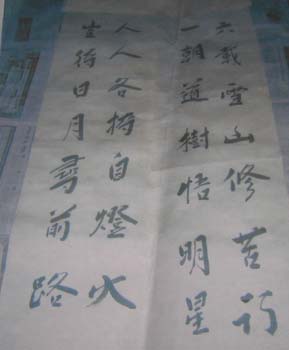 六載雪山修苦行
一朝道樹悟明星
人人各持自燈火
豈待日月尋前路